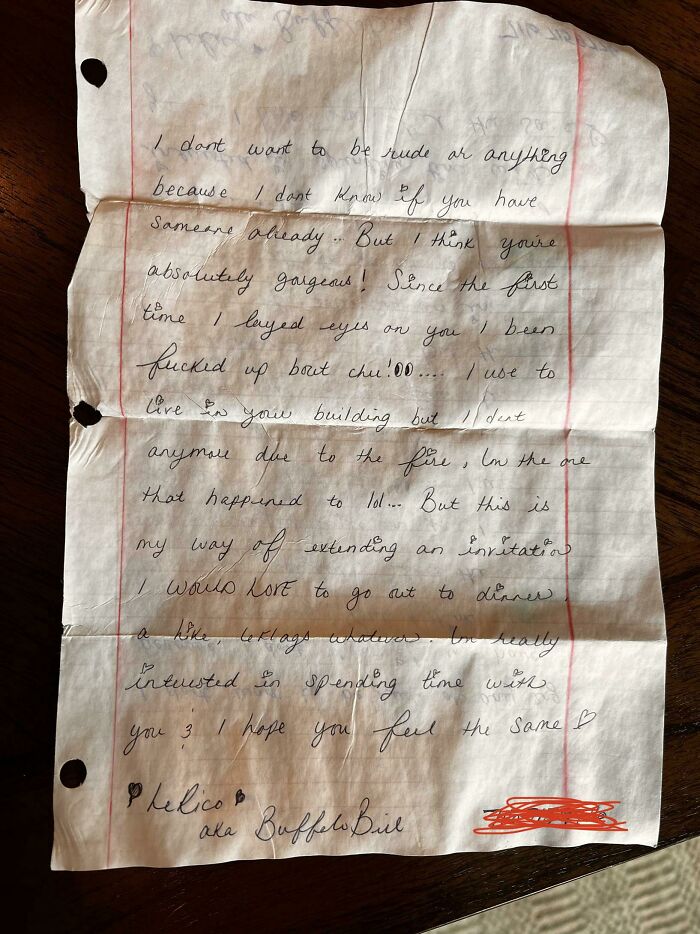 I dont want to be rude or anything
because I dont know if you have
someone already... But I think you're
absolutely gorgeous! Since the first
time I layed eyes on you I been
fucked up bout chu!👀.... I use to
live in your building but I dont
anymore due to the fire, Im the one
that happened to lol... But this is
my way of extending an invitation
I WOULD LOVE to go out to dinner,
a hike, whatever. Im really
interested in spending time with
you & I hope you feel the same ♡
♥LeRico♥
aka Buffalo Bill